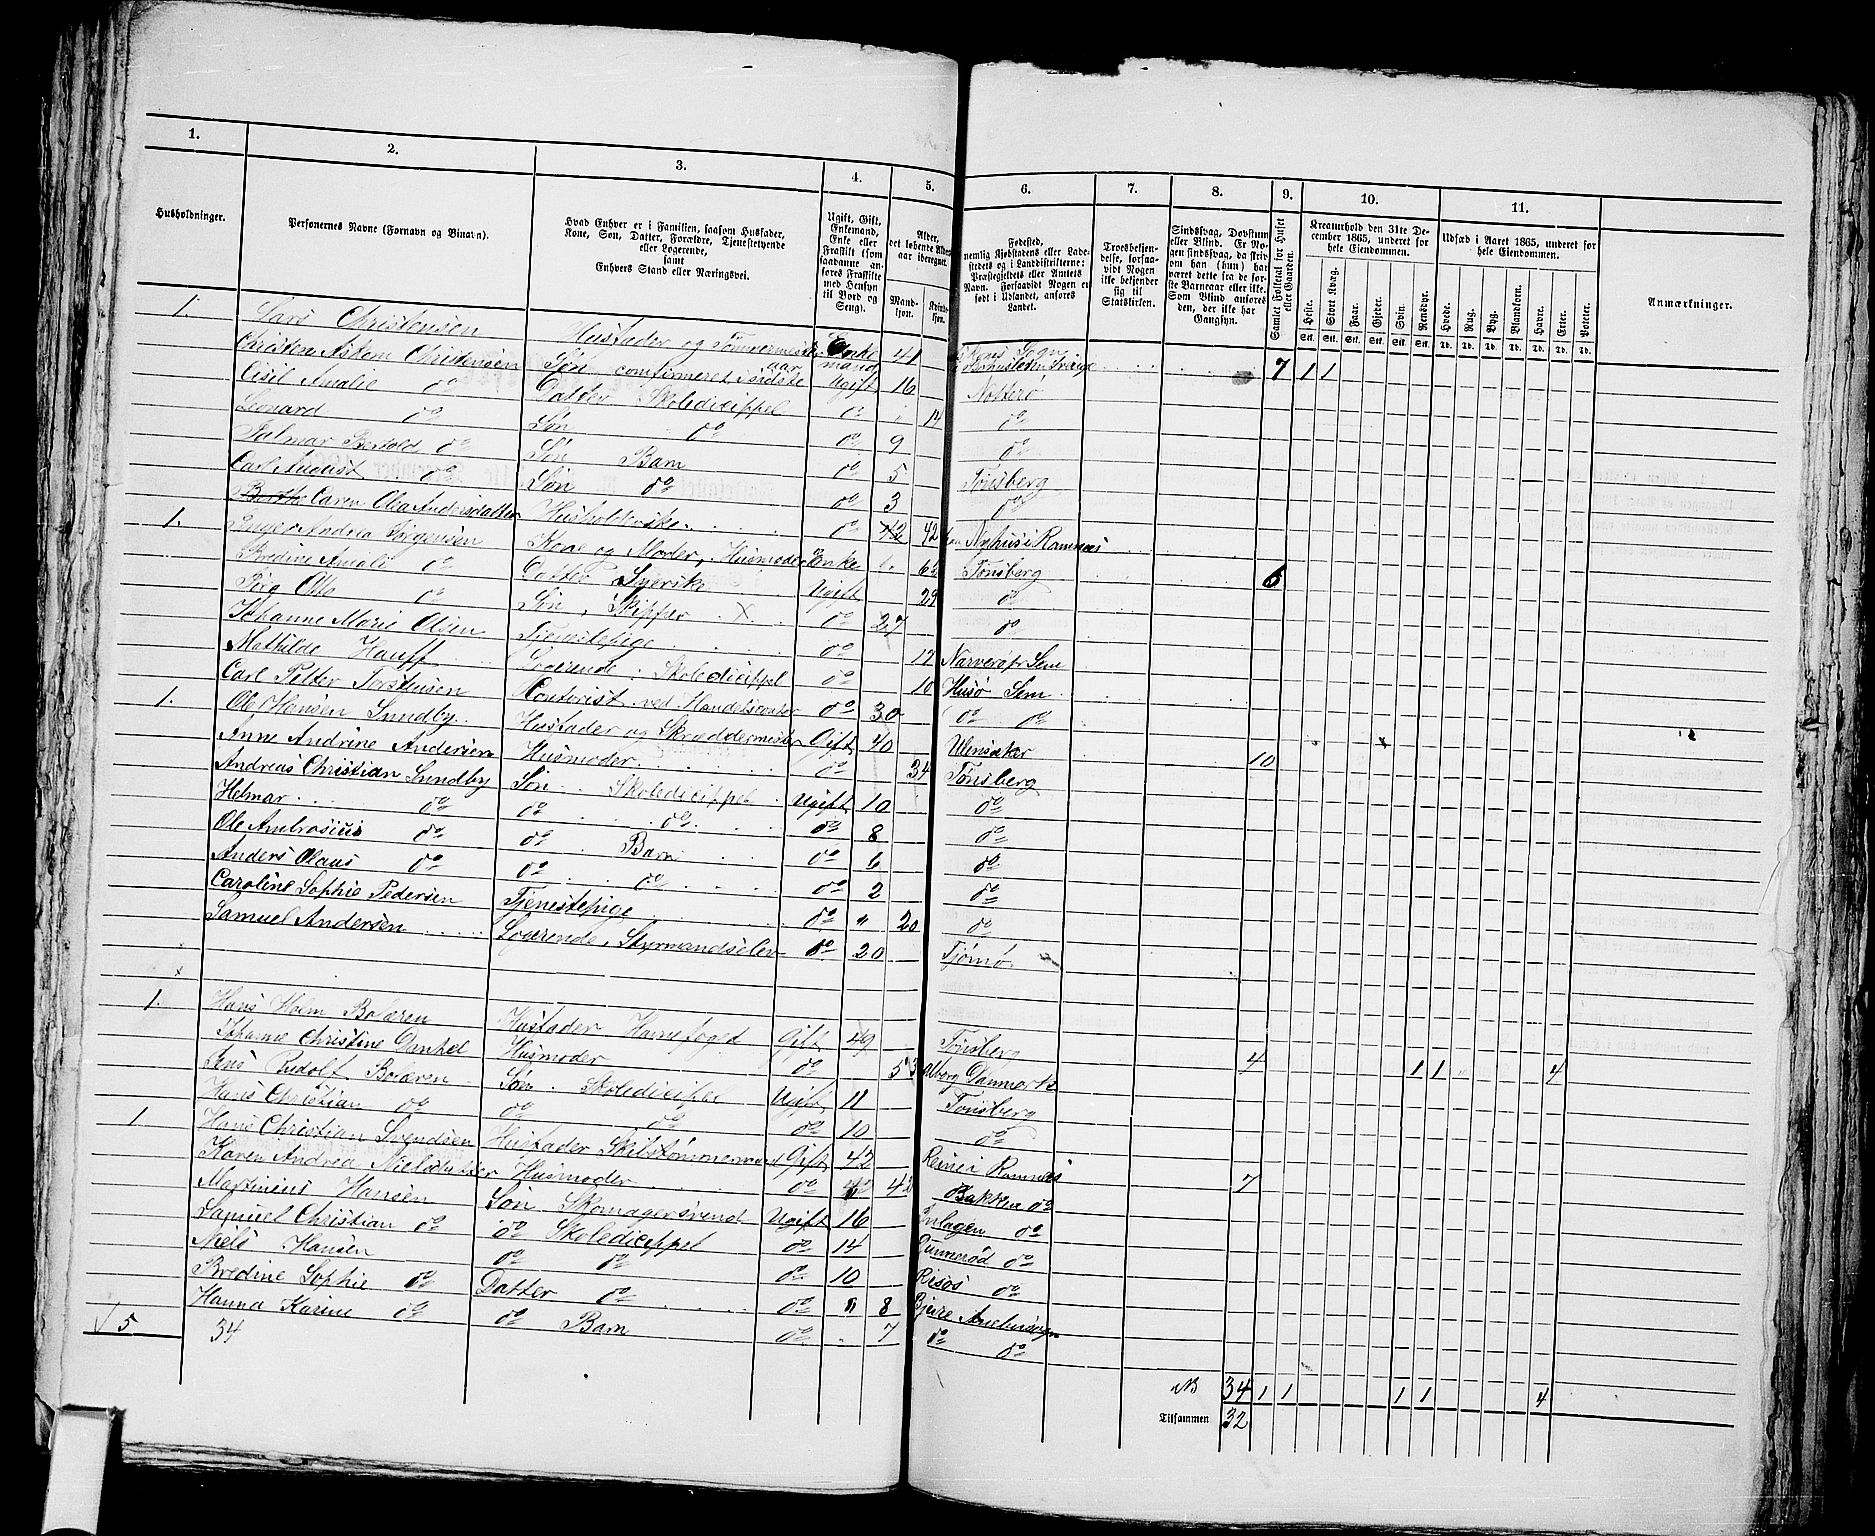 1. 2. 3. 4. 5. 6. 7. 8. 9. 10. 11.
Husholdninger.
Personernes Navne (Fornavn og Binavn).
Hvad Enhver er i Familien, saasom Husfader, Kone, Søn, Datter, Forældre, Tjenestetyende eller Logerende, samt Enhvers Stand eller Næringsvei.
Ugift, Gift, Enkemand, Enke eller Fraskilt (som saadanne anføres Fraskilte med Hensyn til Bord og Seng).
Alder, det løbende Alders aar iberegnet.
Mandkjøn.
Kvindekjøn.
Fødested, nemlig Kjøbstadens eller Ladestedets og i Landdistrikterne: Præstegjeldets eller Amtets Navn. Forsaavidt Nogen er født i Udlandet, anføres Landet.
Troesbekjendelse, forsaavidt Nogen ikke bekjender sig til Statskirken.
Sindssvag, Døvstum eller Blind. Er Nogen sindssvag, da skrives om han (hun) har været dette fra de første Barneaar eller ikke. Som Blind anføres den, der ikke har Gangsyn.
Samlet Folketal for Huset eller Gaarden.
Kreaturhold den 31te December 1865, underet for hele Eiendommen.
Heste. Stort Kvæg. Faar. Gjeder. Svin. Rensdyr.
Udsæd i Aaret 1865, underet for hele Eiendommen.
Hvede. Rug. Byg. Blandkorn. Havre. Erter. Poteter.
Anmærkninger.
1. Lars Christensen Husfader og Tømmermester Enkemand 41 7 1 1
Christen Askem Christensen Søn confirmeret i sidste aar Ugift 16 Nøtterø
Cisil Amalie do Datter Skolediscippel do 14 do
Leonard do Søn do do 9 do
Jalmar Bertold do Søn Barn do 5 Tønsberg
Carl August do Søn do do 3 do
Caren Olea Andersdatter Husholderske do 42 Nyhus i Ramnæs
1. Inger Andrea Jørgensen Kone og Moder, Husmoder Enke 65 Tønsberg 6
Bredine Amali do Datter Syerske Ugift 29 do
Jørg Otto do Søn, Skipper X do 27 do
Johanne Marie Olsen Tjenestepige do 17 Narverø pr Sem
Mathilde Hauff Logerende. Skolediscippel do 10 Husø Sem
Carl Petter Torstensen Contorist ved Handelscontor do 30 do do
1. Ole Hansen Sundby Husfader og Skræddermester Gift 40 Ulensaker 10
Anne Andrine Andersen Husmoder do 34 Tønsberg
Andreas Christian Sundby Søn Skolediscippel Ugift 10 do
Helmar do do do do 8 do
Ole Ambrosius do do Barn do 6 do
Anders Olaus do do do do 2 do
Caroline Sophie Pedersen Tjenestepige do " 20 do
Samuel Andersen Logerende, Styrmandselev do 20 Tjømø
1. Hans Holm Bolæren Husfader Havnefoged Gift 49 Tønsberg 4 1 1 4
Johanne Christine Dankel Husmoder do 53 Alborg Danmark
Jens Rudolf Bolæren Søn Skolediscipel Ugift 11 Tønsberg
Hans Christian do do do do 10 do
1 Hans Christian Svendsen Husfader Skibstømmermand Gift 42 Reine i Ramnæs 7
Karen Andrea Nielsdatter Husmoder do 42 Bakken do
Martinius Hansen Søn Skomagersvend Ugift 16 Enlagen do
Samuel Christian do do Skolediscippel do 14 Gunnerød do
Niels Hansen do do do 10 Risøs do
Bredine Sophie do Datter do do " 8 Bjure Andebusogn
Hanna Karine do do Barn do 7 do do
5 34
34 1 1 1 1 4
Tilsammen 32